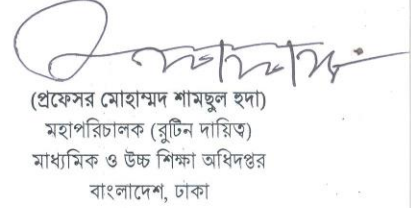 (প্রফেসর মোহাম্মদ শামছুল হুদা)
মহাপরিচালক (রুটিন দায়িত্ব)
মাধ্যমিক ও উচ্চ শিক্ষা অধিদপ্তর
বাংলাদেশ, ঢাকা